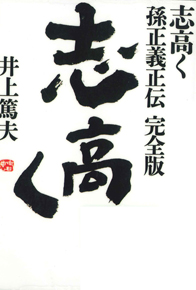 志高く
孫正義正伝 完全版
井上篤夫
志高く